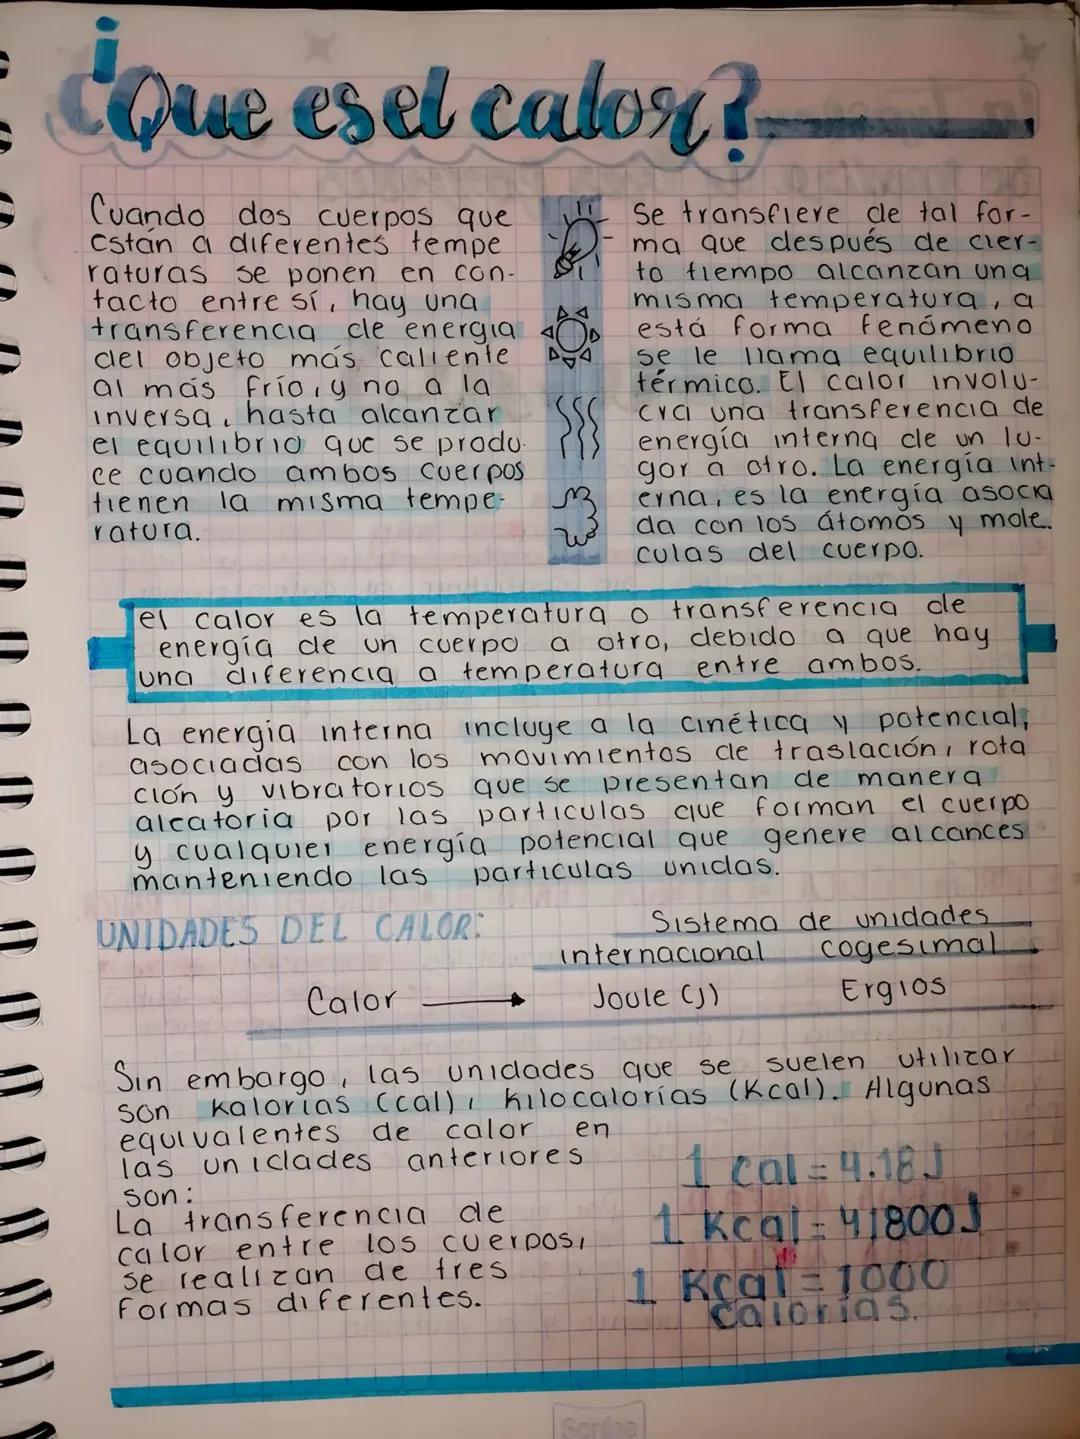 ¿Que es el calor?
Cuando dos cuerpos que
están a diferentes tempe
raturas se ponen en con-
tacto entre sí, hay una
transferencia de energia
del objeto más caliente
al más frío, y no a la
inversa, hasta alcanzar
el equilibrio que se produ-
ce cuando ambos cuerpos
tienen la misma tempe-
ratura.
Se transfiere de tal for-
ma que después de cier-
to tiempo alcanzan una
misma temperatura, a
está forma fenómeno
se le llama equilibrio
térmico. El calor involu-
cra una transferencia de
energía interna de un lu-
gar a otro. La energía int-
erna, es la energía asocia
da con los átomos y mole.
culas del cuerpo.
el calor es la temperatura o transferencia de
energía de un cuerpo a otro, debido a que hay
una diferencia a temperatura entre ambos.
La energia interna incluye a la cinética y potencial,
asociadas con los movimientos de traslación, rota
ción y vibratorios que se presentan de manera
alcatoria por las particulas que forman el cuerpo
y cualquier energía potencial que genere alcances
manteniendo las particulas unidas.
UNIDADES DEL CALOR:
Sistema de unidades
internacional cogesimal
Calor Joule (J) Ergios
Sin embargo, las unidades que se suelen utilizar
son Kalorias (cal), kilocalorías (Kcal). Algunas
equivalentes de calor en
las unidades anteriores
son:
La transferencia de
calor entre los cuerpos,
se realizan de tres
formas diferentes.
1 cal = 4.18J
1 Kcal = 41800J
1 Kcal = 1000
calorías.
Scribe